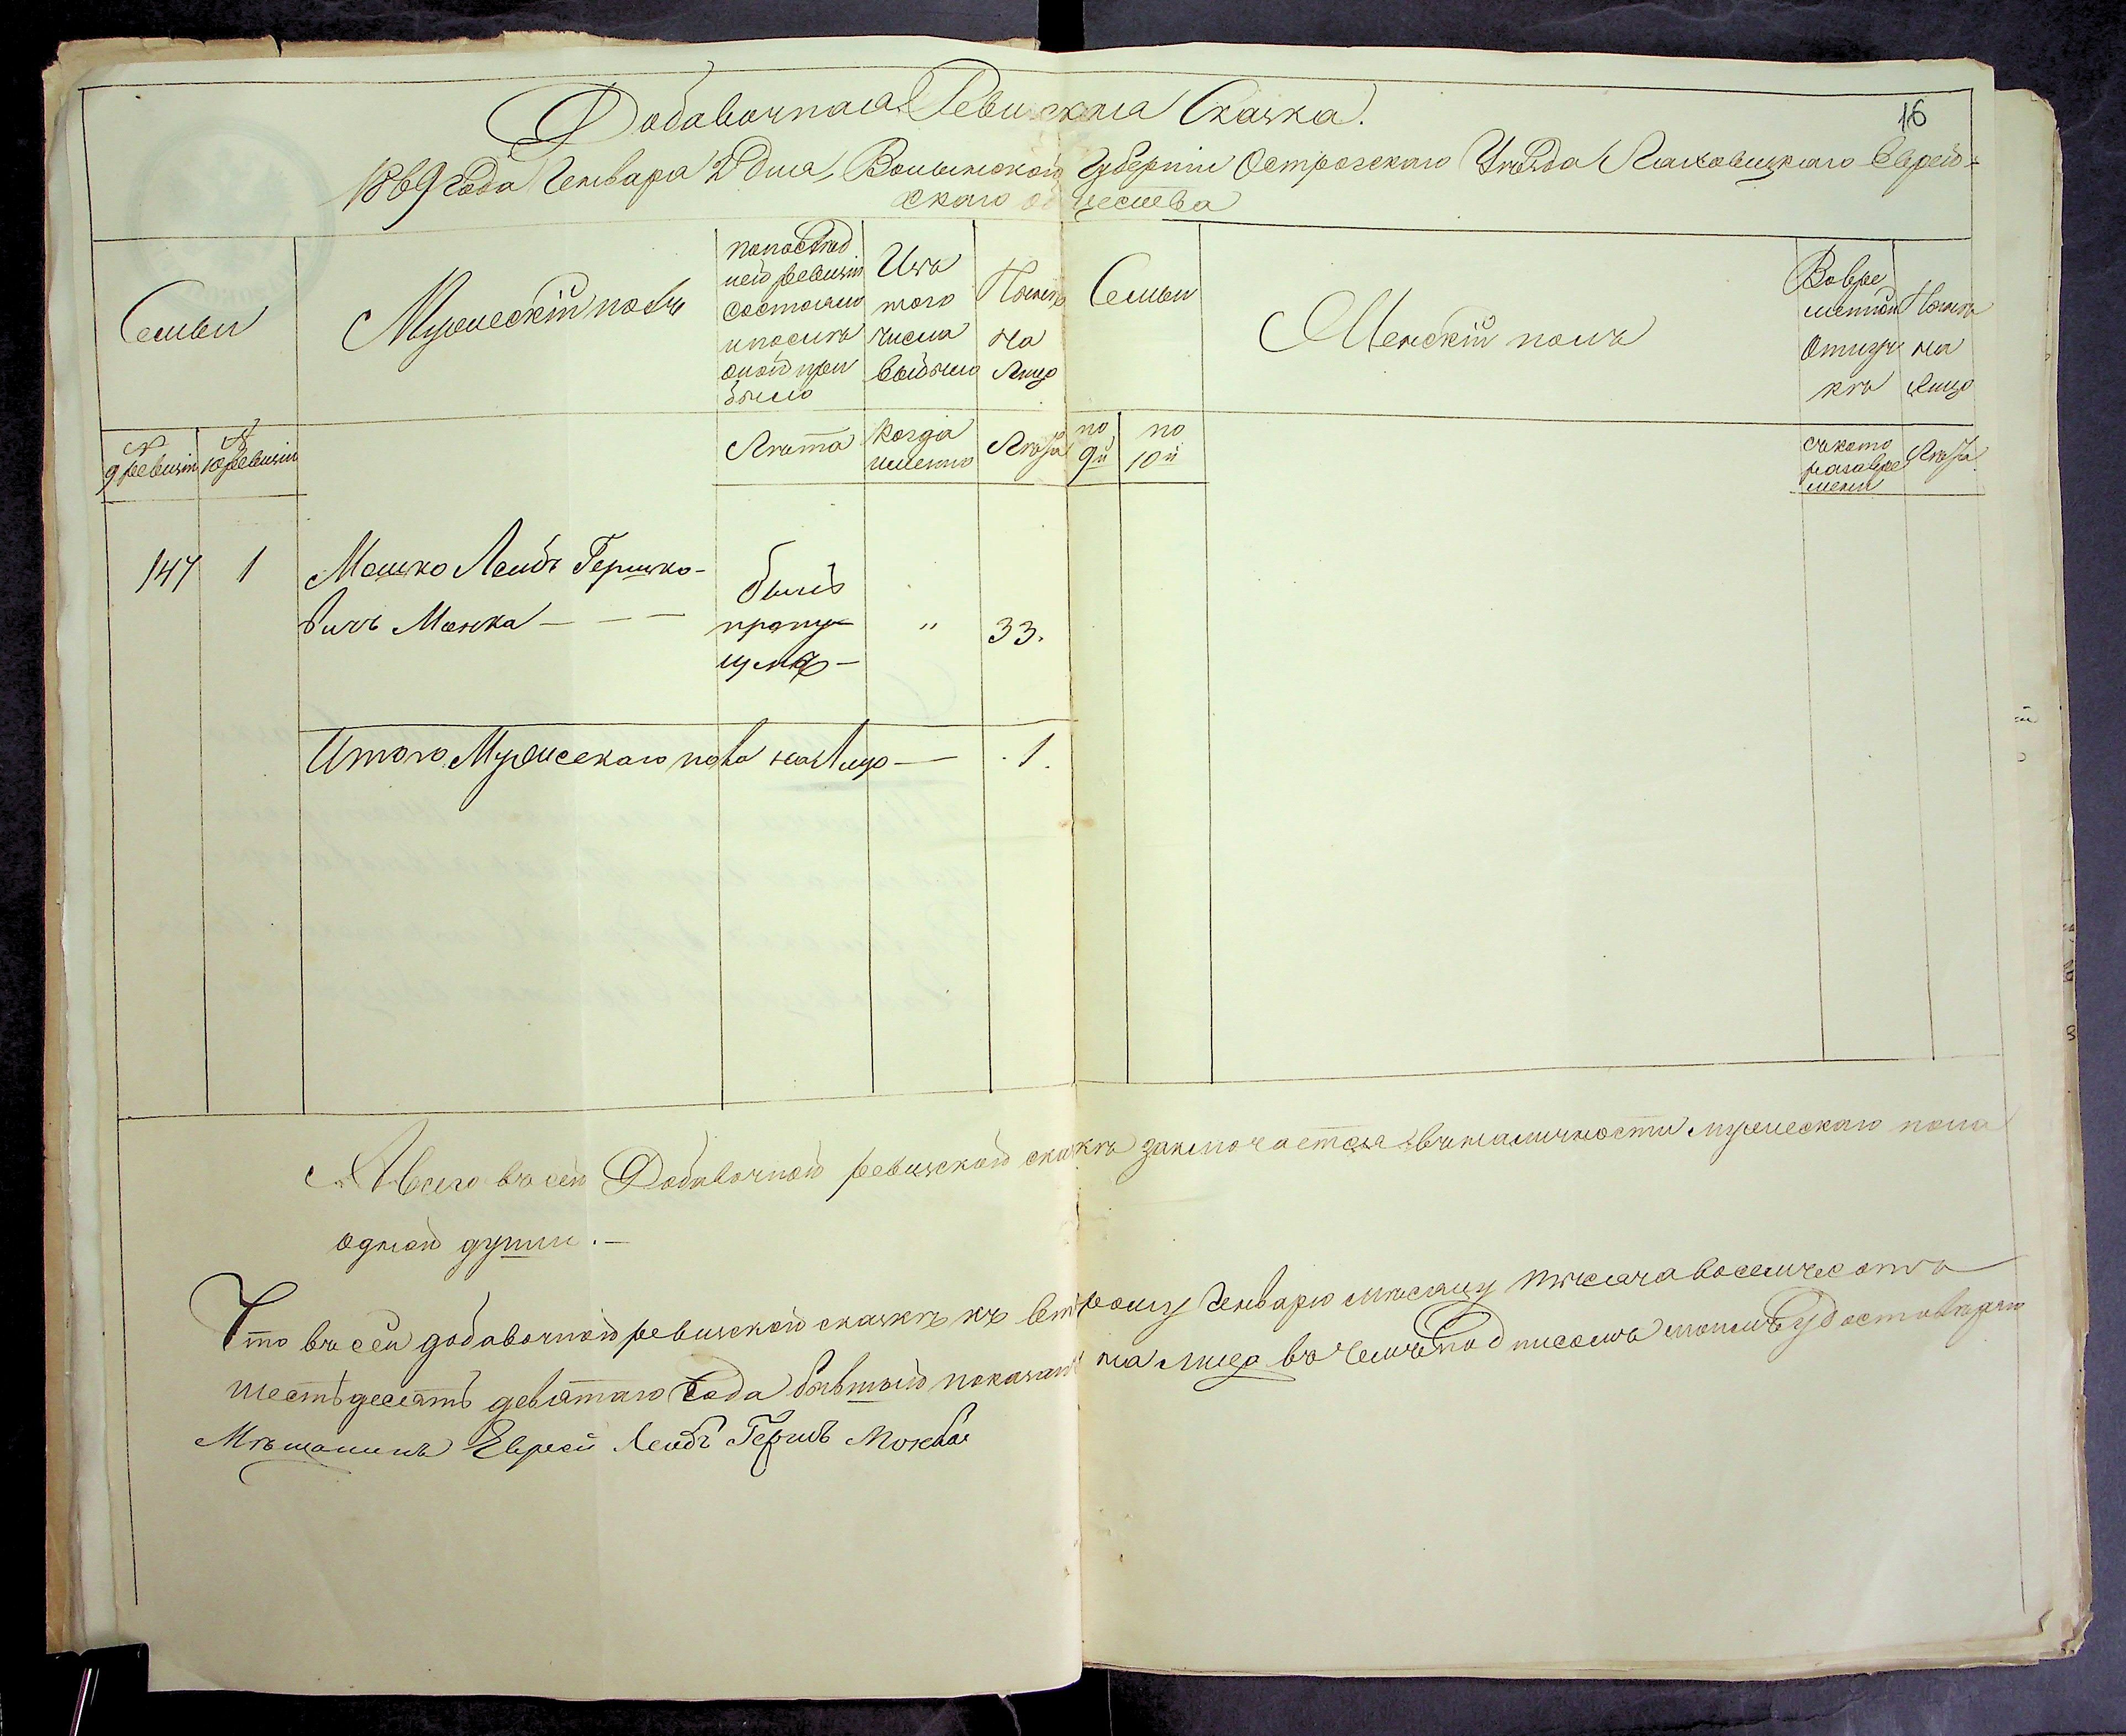 16
Добавочная Ревизская Сказка.
1869 года Генваря 2 дня, Волынской Губерніи Острогскаго Уѣзда Ляховицкаго Еврей-
скаго общества
Семьи
Мужескій полъ
по послѣд
ней ревизіи
состояло
и послѣ
оной при
было
Изъ
того
числа
выбыло
Нынѣ
на
лицо
Семьи
Женскій полъ
Во вре
менной
отлуч
кѣ
Нынѣ
на
лицо
№
9 ревизіи
№
10 ревизіи
Лѣта
Когда
именно
Лѣта
по
9й
по
10й
съ кото
раго вре
мени
Лѣта
147 1 Мошко Лейбъ Гершко-
вичъ Мокка — — —
былъ
пропу
щенъ —
" 33.
Итого Мужескаго пола на лицо — . 1.
А Всего въ сей Добавочной ревизской сказкѣ заключается въ наличности мужескаго пола
одной души. —
Что въ сей добавочной ревизской сказкѣ къ второму Генварю мѣсяцу тысяча восемьсотъ
шестьдесятъ девятаго года бывшый показанъ на лицо въ чемъ подписомъ моимъ удостовѣряю
Мѣщанинъ Еврей Лейбъ Гершъ